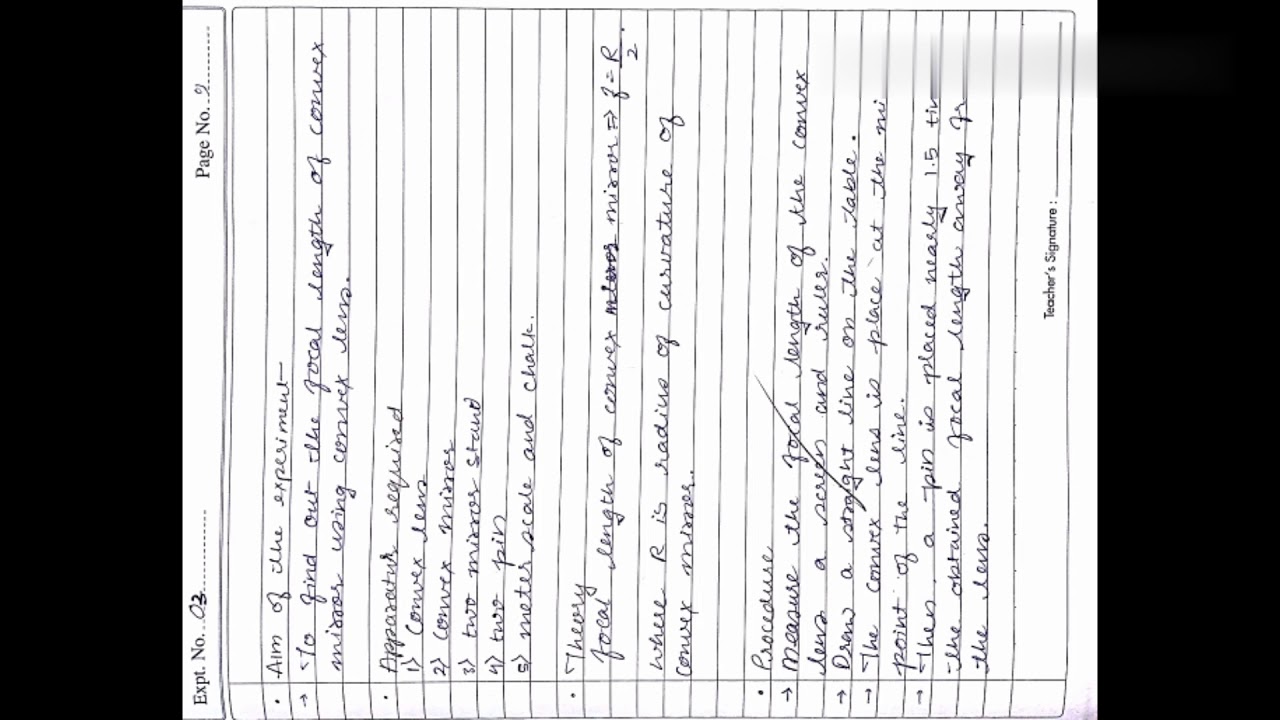 Expt. No. 03 Page No. 2
• Aim of the experiment—
→ To find out the focal length of convex
mirror using convex lens.
• Apparatus required
1) Convex lens
2) Convex mirror
3) two mirror stand
4) two pin
5) meter scale and chalk.
• Theory
focal length of convex mirror => f = R/2.
where R is radius of curvature of
convex mirror.
• Procedure
→ Measure the focal length of the convex
lens a screen and ruler.
→ Draw a straight line on the table.
→ The convex lens is place at the mi
point of the line.
→ Then, a pin is placed nearly 1.5 tim
the obtained focal length away fr
the lens.
Teacher's Signature :